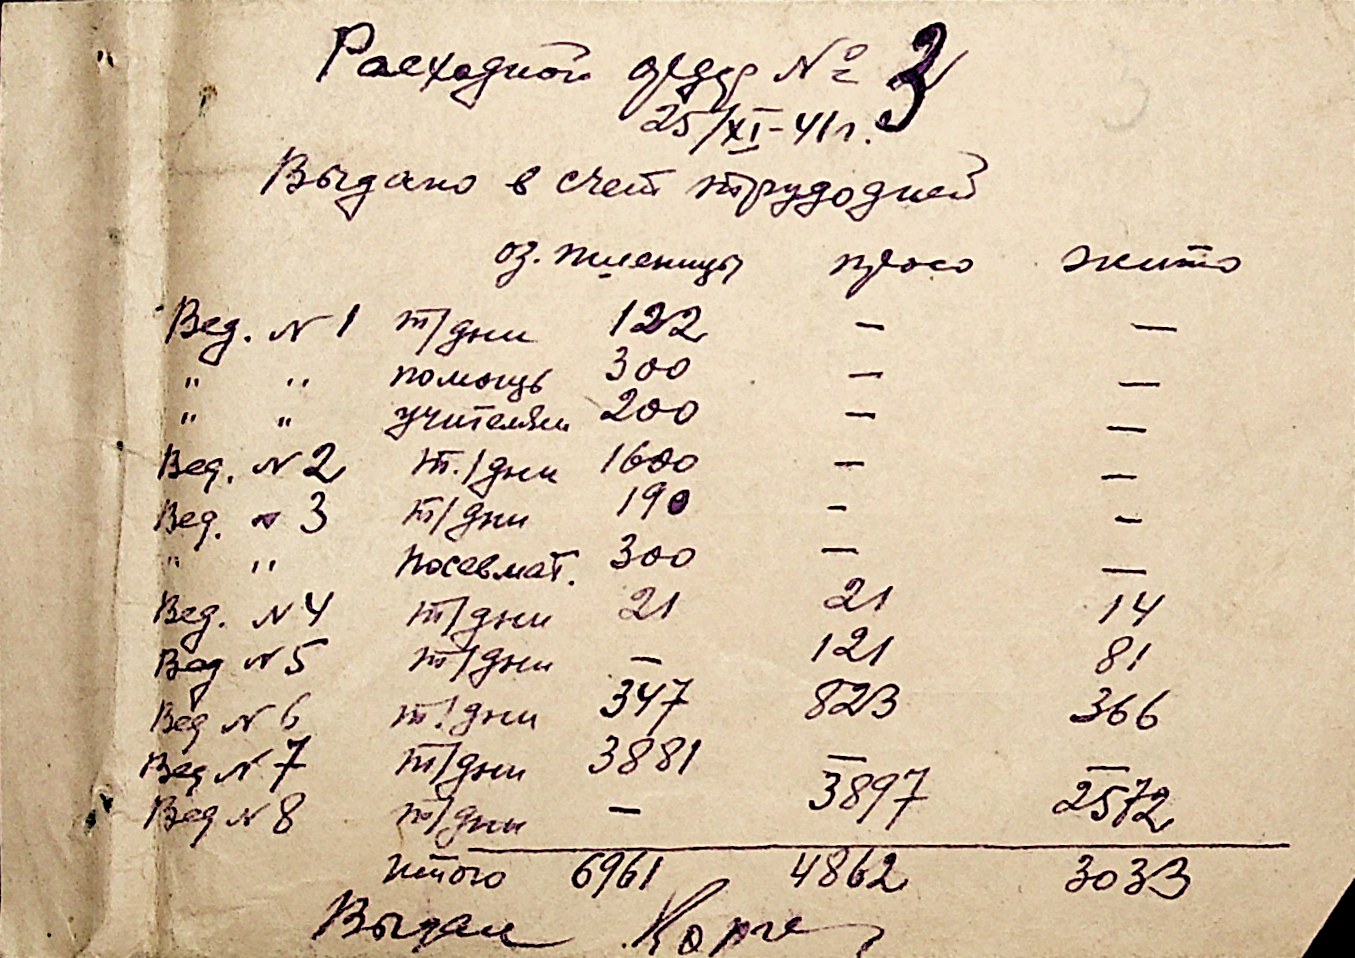 Расходной ордер № 3
25/XI-41 г.
Выдано в счет трудодней
оз. пшеницы просо жито
Вед. N 1 т/дни 122 — —
" " помощь 300 — —
" " учителям 200 — —
Вед. N 2 т./дни 1600 — —
Вед. " 3 т/дни 190 — —
" " посевмат. 300 — —
Вед. N 4 т/дни 21 21 14
Вед N 5 т/дни — 121 81
Вед N 6 т/дни 347 823 366
Вед N 7 т/дни 3881 — —
Вед N 8 т/дни — 3897 2572
итого 6961 4862 3033
Выдал